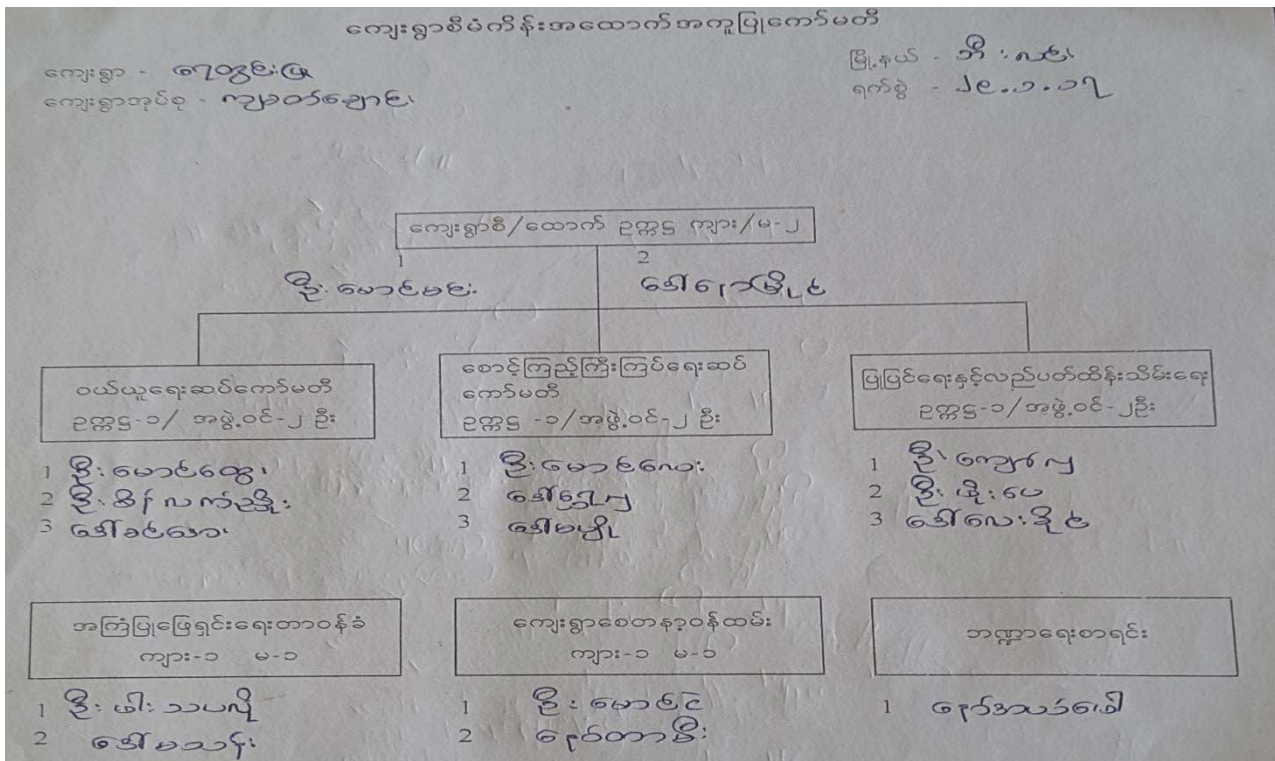 ကျေးရွာစီမံကိန်းအထောက်အကူပြုကော်မတီ
ကျေးရွာ - ရေတွင်းဖြူ
ကျေးရွာအုပ်စု - ကျုခတ်ချောင်း
မြို့နယ် - ဘီးလင်း
ရက်စွဲ - ၂၉.၁.၁၇
ကျေးရွာစီ/ထောက် ဥက္ကဋ္ဌ ကျား/မ-၂
1 ဦးမောင်မင်း
2 ဒေါ်
ဝယ်ယူရေးဆပ်ကော်မတီ
ဥက္ကဋ္ဌ-၁/ အဖွဲ့ဝင်-၂ ဦး
1 ဦးမောင်ထွေး
2 ဦးစိန်
3 ဒေါ်ခင်အေး
စောင့်ကြည့်ကြီးကြပ်ရေးဆပ်
ကော်မတီ
ဥက္ကဋ္ဌ -၁/အဖွဲ့ဝင်-၂ ဦး
1 ဦးမောင်လေး
2 ဒေါ်
3 ဒေါ်မပျို
ပြုပြင်ရေးနှင့်လည်ပတ်ထိန်းသိမ်းရေး
ဥက္ကဋ္ဌ-၁/အဖွဲ့ဝင်-၂ဦး
1 ဦး
2 ဦးဖိုးပေ
3 ဒေါ်လေးခိုင်
အကြံပြုဖြေရှင်းရေးတာဝန်ခံ
ကျား-၁ မ-၁
1 ဦး
2 ဒေါ်မသန်း
ကျေးရွာစေတနာ့ဝန်ထမ်း
ကျား-၁ မ-၁
1 ဦးမောင်ငြိ
2 နော်တာမီး
ဘဏ္ဍာရေးစာရင်း
1 နော်